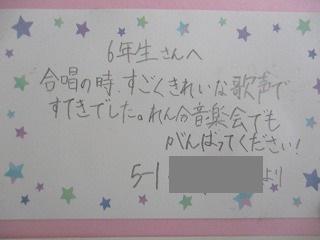 6年生さんへ
合唱の時、すごくきれいな歌声で
すてきでした。れん合音楽会でも
がんばってください!
5-1 より